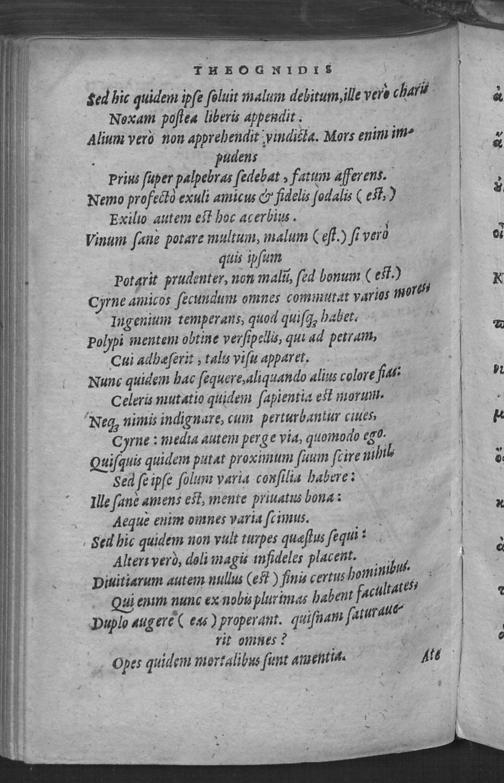 THEOGNIDIS
Sed hic quidem ipse soluit malum debitum, ille verò charis
Noxam postea liberis appendit.
Alium verò non apprehendit vindicta. Mors enim im-
pudens
Prius super palpebras sedebat, fatum afferens.
Nemo profectò exuli amicus & fidelis sodalis (est,)
Exilio autem est hoc acerbius.
Vinum sanè potare multum, malum (est.) si verò
quis ipsum
Potarit prudenter, non malũ, sed bonum (est.)
Cyrne amicos secundum omnes commutat varios mores,
Ingenium temperans, quod quisq; habet.
Polypi mentem obtine versipellis, qui ad petram,
Cui adhæserit, talis visu apparet.
Nunc quidem hac sequere, aliquando alius colore fias:
Celeris mutatio quidem sapientia est morum.
Neq; nimis indignare, cum perturbantur ciues,
Cyrne: media autem perge via, quomodo ego.
Quisquis quidem putat proximum suum scire nihil,
Sed se ipse solum varia consilia habere:
Ille sanè amens est, mente priuatus bona:
Aeque enim omnes varia scimus.
Sed hic quidem non vult turpes quæstus sequi:
Alteri verò, doli magis infideles placent.
Diuitiarum autem nullus (est) finis certus hominibus.
Qui enim nunc ex nobis plurimas habent facultates,
Duplo augere (eas) properant. quisnam saturaue-
rit omnes?
Opes quidem mortalibus sunt amentia.
Ate